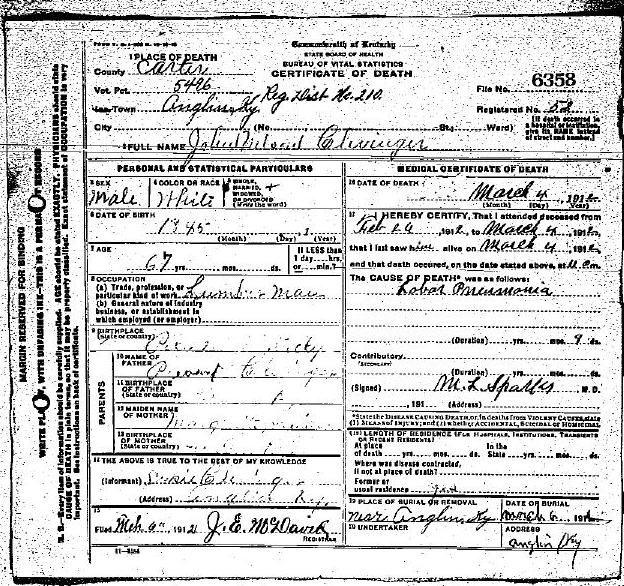 Commonwealth of Kentucky
STATE BOARD OF HEALTH
BUREAU OF VITAL STATISTICS
CERTIFICATE OF DEATH
1 PLACE OF DEATH
County Carter
Vot. Pct. 5496
Reg. Dist No. 210
File No. 6358
Town Anglin Ky
Registered No. 52
[If death occurred in a hospital or institution, give its NAME instead of street and number.]
City (No. St.; Ward)
2 FULL NAME John Nelson Clevenger
PERSONAL AND STATISTICAL PARTICULARS
3 SEX
Male
4 COLOR OR RACE
White
5 SINGLE, MARRIED, WIDOWED, OR DIVORCED
(Write the word)
6 DATE OF BIRTH
1845
(Month) (Day)
7 AGE
67 yrs. mos. ds.
If LESS than 1 day, hrs. or min.?
8 OCCUPATION
(a) Trade, profession, or particular kind of work
(b) General nature of industry business, or establishment in which employed (or employer)
9 BIRTHPLACE
(State or country)
PARENTS
10 NAME OF FATHER
11 BIRTHPLACE OF FATHER
(State or country)
12 MAIDEN NAME OF MOTHER
13 BIRTHPLACE OF MOTHER
(State or country)
14 THE ABOVE IS TRUE TO THE BEST OF MY KNOWLEDGE
(Informant)
(Address)
15
Filed Mch 6, 1912 J. E. McDavid
REGISTRAR
11-3184
MEDICAL CERTIFICATE OF DEATH
16 DATE OF DEATH
March 4, 1912
(Month) (Day) (Year)
17 I HEREBY CERTIFY, That I attended deceased from
Feb 26 1912, to March 4, 1912,
that I last saw him alive on March 4, 1912
and that death occurred, on the date stated above, at 11 P.m.
The CAUSE OF DEATH* was as follows:
Lobar Pneumonia
(Duration) yrs. mos. 9 ds.
Contributory
(SECONDARY)
(Duration) yrs. mos. ds.
(Signed) M. L. Sparks M. D.
, 191 (Address)
*State the DISEASE CAUSING DEATH, or, in deaths from VIOLENT CAUSES, state (1) MEANS OF INJURY; and (2) whether ACCIDENTAL, SUICIDAL OR HOMICIDAL
18 LENGTH OF RESIDENCE (FOR HOSPITALS, INSTITUTIONS, TRANSIENTS OR RECENT RESIDENTS)
At place of death yrs. mos. ds. In the State yrs. mos. ds.
Where was disease contracted, if not at place of death?
Former or usual residence
19 PLACE OF BURIAL OR REMOVAL
near Anglin, Ky
DATE OF BURIAL
March 6, 1912
20 UNDERTAKER
ADDRESS
Anglin Ky
MARGIN RESERVED FOR BINDING
WRITE PLAINLY, WITH UNFADING INK—THIS IS A PERMANENT RECORD
N. B.—Every item of information should be carefully supplied. AGE should be stated EXACTLY. PHYSICIANS should state CAUSE OF DEATH in plain terms, so that it may be properly classified. Exact statement of OCCUPATION is very important. See instructions on back of certificate.